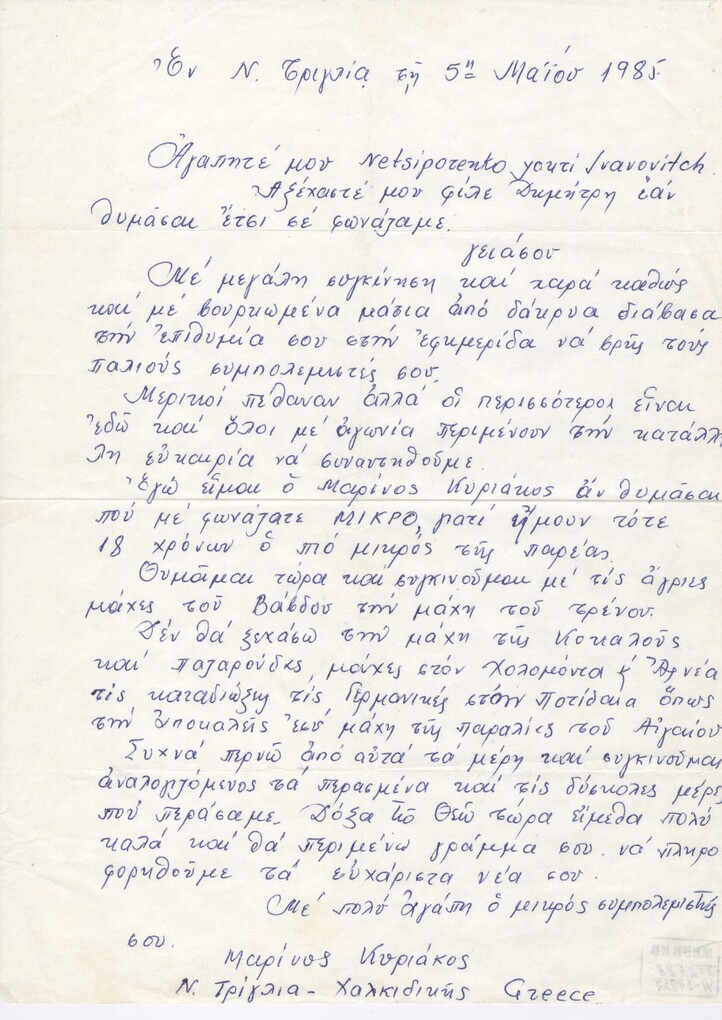 Ἐν Ν. Τριγλία τῇ 5ῃ Μαΐου 1985
Ἀγαπητέ μου Netsipotenko youti Ivanovitch.
Ἀξέχαστέ μου φίλε Δημήτρη ἐάν
θυμᾶσαι ἔτσι σέ φωνάζαμε.
γειάσου
Μέ μεγάλη συγκίνηση καί χαρά καθώς
καί μέ βουρκωμένα μάτια ἀπό δάκρυα διάβασα
τήν ἐπιθυμία σου στήν ἐφημερίδα νά βρῆς τούς
παλιούς συμπολεμιστές σου.
Μερικοί πέθαναν ἀλλά οἱ περισσότεροι εἶναι
ἐδῶ καί ὅλοι μέ ἀγωνία περιμένουν τήν κατάλη
λη εὐκαιρία νά συναντηθοῦμε.
Ἐγώ εἶμαι ὁ Μαρίνος Κυριάκος ἄν θυμᾶσαι
πού μέ φωνάζατε ΜΙΚΡΟ, γιατί ἤμουν τότε
18 χρόνων ὁ πιό μικρός τῆς παρέας.
Θυμᾶμαι τώρα καί συγκινοῦμαι μέ τίς ἄγριες
μάχες τοῦ Βάβδου τήν μάχη τοῦ τρένου.
Δέν θά ξεχάσω τήν μάχη τῆς Κοκαλοῦς
καί Παζαρούδας, μάχες στόν Χολομόντα & Ἀρνέα
τίς καταδιώξῃ τίς Γερμανικές στήν Ποτίδαια ὅπως
τήν ἀποκαλεῖς ἐσύ μάχη τῆς παραλίας τοῦ Αἰγαίου
Συχνά περνῶ ἀπό αὐτά τά μέρη καί συγκινοῦμαι
ἀναλογιζόμενος τά περασμένα καί τίς δύσκολες μέρες
πού περάσαμε. Δόξα τῶ Θεῶ τώρα εἴμεθα πολύ
καλά καί θά περιμένω γράμμα σου. νά πληρο
φορηθοῦμε τά εὐχάριστα νέα σου.
Μέ πολύ ἀγάπη ὁ μικρός συμπολεμιστής
σου.
Μαρίνος Κυριάκος
Ν. Τρίγλια - Χαλκιδικῆς Greece